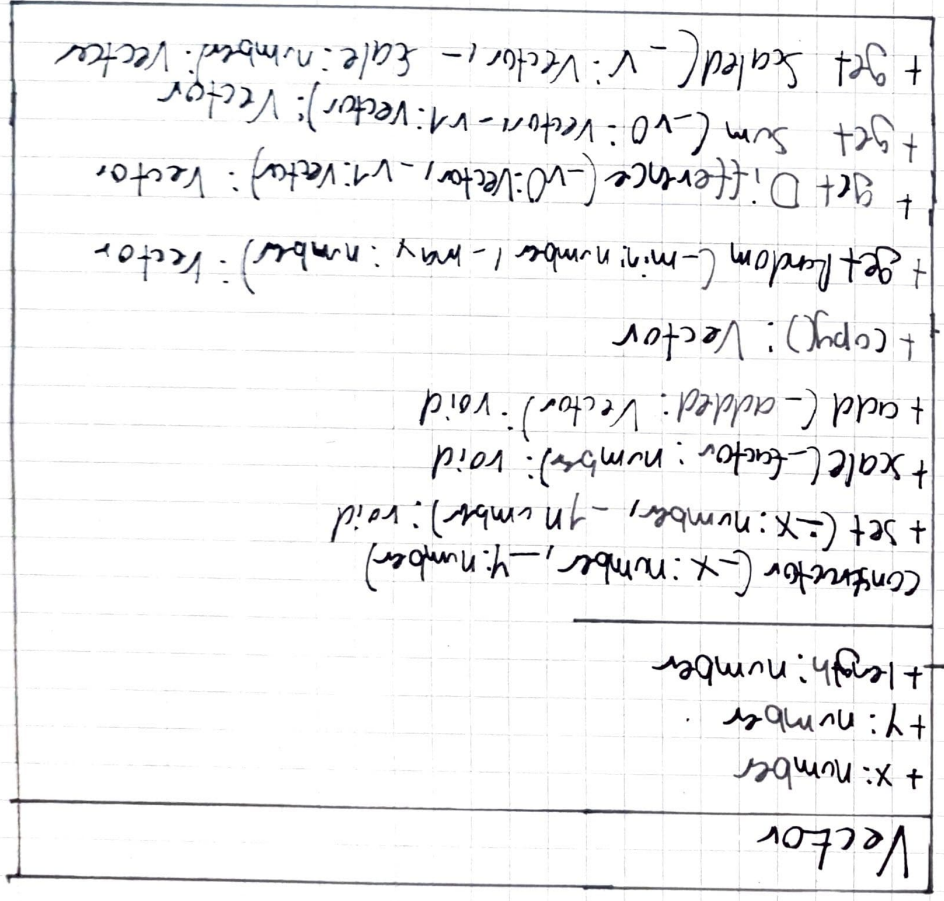 Vector
+ x: number
+ y: number
+ lengh: number
constructor (_x: number, _y: number)
+ set (_x: number, _y number): void
+ scale(_factor: number): void
+ add (_added: Vector): void
+ copy(): Vector
+ getRandom (_min: number, _max: number): Vector
+ get Difference (_v0: Vector, _v1: Vector): Vector
+ get sum (_v0: Vector, _v1: Vector): Vector
+ get scaled (_v: Vector, _scale: number): Vector